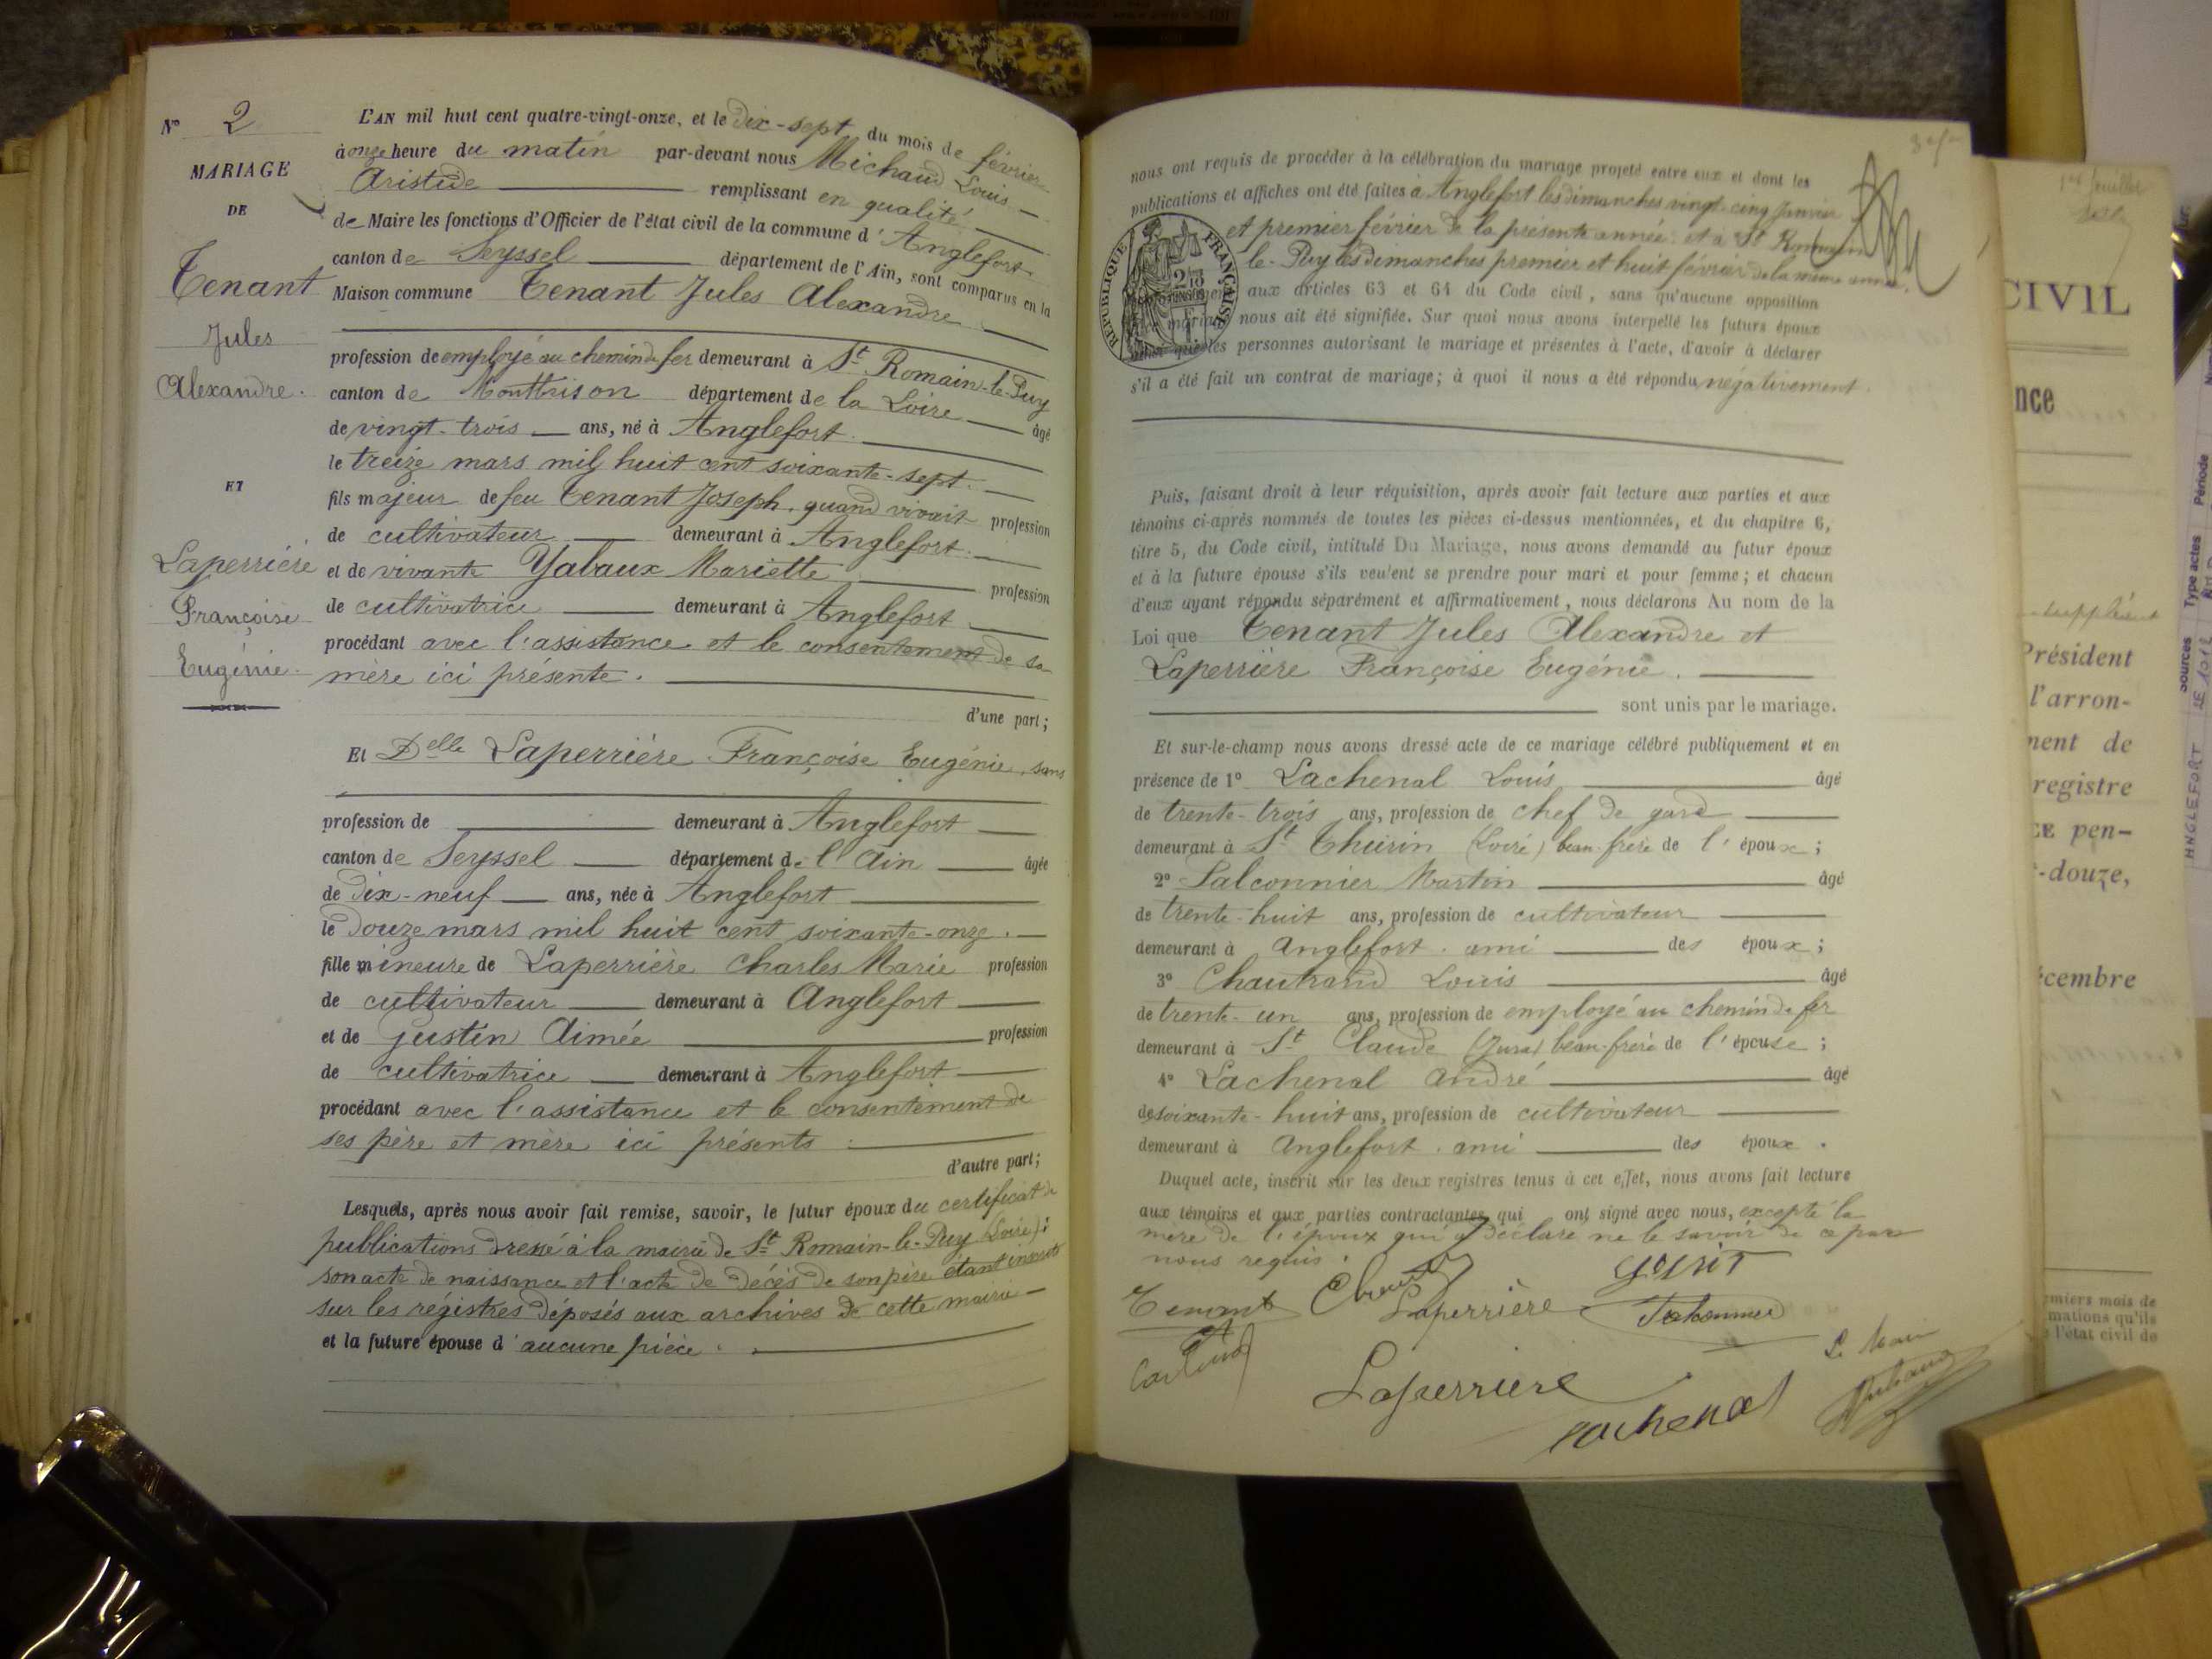 N° 2
MARIAGE
DE
Tenant
Jules
Alexandre.
ET
Laperrière
Françoise
Eugénie.
L'AN mil huit cent quatre-vingt-onze, et le dix-sept du mois de février
à onze heure du matin par-devant nous Michaud Louis
Aristide remplissant en qualité
de Maire les fonctions d'Officier de l'état civil de la commune d'Anglefort
canton de Seyssel département de l'Ain, sont comparus en la
Maison commune Tenant Jules Alexandre
profession de employé au chemin de fer demeurant à St Romain-le-Puy
canton de Montbrison département de la Loire âgé
de vingt-trois ans, né à Anglefort.
le treize mars mil huit cent soixante-sept.
fils majeur de feu Tenant Joseph, quand vivait profession
de cultivateur demeurant à Anglefort.
et de vivante Yabaux Mariette profession
de cultivatrice demeurant à Anglefort
procédant avec l'assistance et le consentement de sa
mère ici présente.
d'une part;
Et Delle Laperrière Françoise Eugénie, sans
profession de demeurant à Anglefort
canton de Seyssel département de l'Ain âgée
de dix-neuf ans, née à Anglefort
le douze mars mil huit cent soixante-onze.
fille mineure de Laperrière Charles Marie profession
de cultivateur demeurant à Anglefort
et de Justin Aimée profession
de cultivatrice demeurant à Anglefort
procédant avec l'assistance et le consentement de
ses père et mère ici présents
d'autre part;
Lesquels, après nous avoir fait remise, savoir, le futur époux du certificat de
publications dressé à la mairie de St Romain-le-Puy (Loire);
son acte de naissance et l'acte de décès de son père étant inscrits
sur les régistres déposés aux archives de cette mairie
et la future épouse d'aucune pièce.
nous ont requis de procéder à la célébration du mariage projeté entre eux et dont les
publications et affiches ont été faites à Anglefort les dimanches vingt-cinq Janvier
et premier février de la présente année et à St Romain
le-Puy les dimanches premier et huit février de la même année.
RÉPUBLIQUE FRANÇAISE
aux articles 63 et 64 du Code civil, sans qu'aucune opposition
mariage nous ait été signifiée. Sur quoi nous avons interpellé les futurs époux
ainsi que les personnes autorisant le mariage et présentes à l'acte, d'avoir à déclarer
s'il a été fait un contrat de mariage; à quoi il nous a été répondu négativement.
Puis, faisant droit à leur réquisition, après avoir fait lecture aux parties et aux
témoins ci-après nommés de toutes les pièces ci-dessus mentionnées, et du chapitre 6,
titre 5, du Code civil, intitulé Du Mariage, nous avons demandé au futur époux
et à la future épouse s'ils veulent se prendre pour mari et pour femme; et chacun
d'eux ayant répondu séparément et affirmativement, nous déclarons Au nom de la
Loi que Tenant Jules Alexandre et
Laperrière Françoise Eugénie.
sont unis par le mariage.
Et sur-le-champ nous avons dressé acte de ce mariage célébré publiquement et en
présence de 1° Lachenal Louis âgé
de trente-trois ans, profession de chef de gare
demeurant à St Thurin (Loire) beau-frère de l'époux;
2° Falconnier Martin âgé
de trente-huit ans, profession de cultivateur
demeurant à Anglefort. ami des époux;
3° Chautrand Louis âgé
de trente-un ans, profession de employé au chemin de fer
demeurant à St Claude (Jura) beau-frère de l'épouse;
4° Lachenal André âgé
de soixante-huit ans, profession de cultivateur
demeurant à Anglefort. ami des époux.
Duquel acte, inscrit sur les deux registres tenus à cet effet, nous avons fait lecture
aux témoins et aux parties contractantes qui ont signé avec nous, excepté la
mère de l'époux qui a déclaré ne le savoir de ce par
nous requis.
Tenant Laperrière
Laperrière
Lachenal
Le Maire
Michaud
1er feuillet
CIVIL
nce
Président
l'arron-
ment de
registre
CE pen-
t-douze,
écembre
emiers mois de
mations qu'ils
l'état civil de
Sources Type actes Période
ANGLEFORT